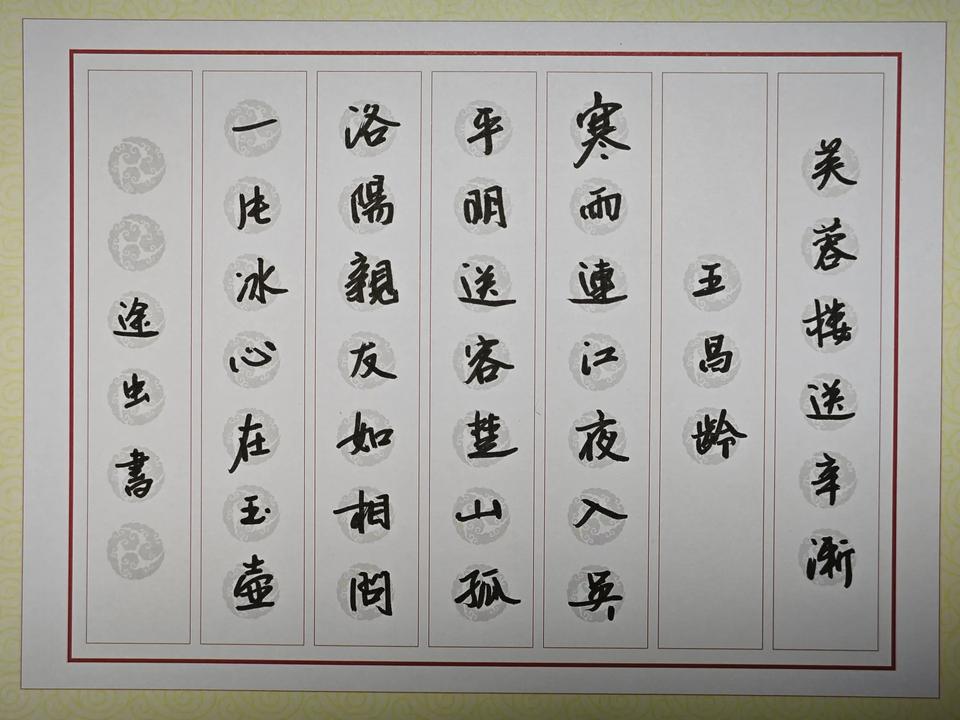 芙蓉楼送辛渐
王昌龄
寒雨連江夜入吴
平明送客楚山孤
洛陽親友如相問
一片冰心在玉壺
途出書